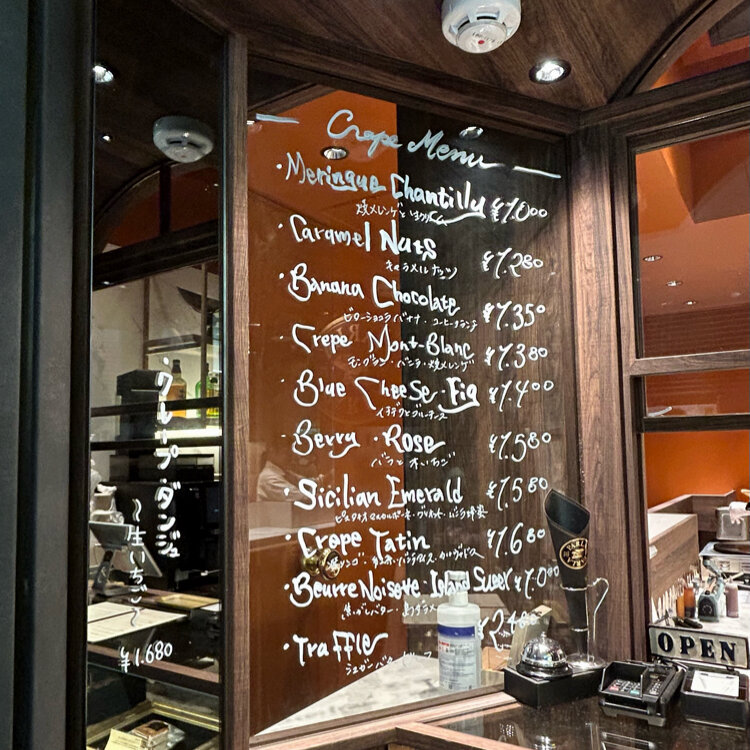 Crepe Menu
・Meringue Chantilly ¥1.000
焼メレンゲと
・Caramel Nuts ¥1.280
キャラメルナッツ
・Banana Chocolate ¥1.350
・Crepe Mont-Blanc ¥1.380
モンブラン・バニラ・焼メレンゲ
・Blue Cheese・Fig ¥1.400
イチヂクとブルーチーズ
・Berry・Rose ¥1.580
バラと赤いちご
・Sicilian Emerald ¥1.580
・Crepe Tatin ¥1.680
・Beurre Noisette Island Suger ¥1.000
焦がしバター・
・Traffle ¥2.480
・クレープ・ダンジュ
〜生いちご〜
¥1.680
OPEN